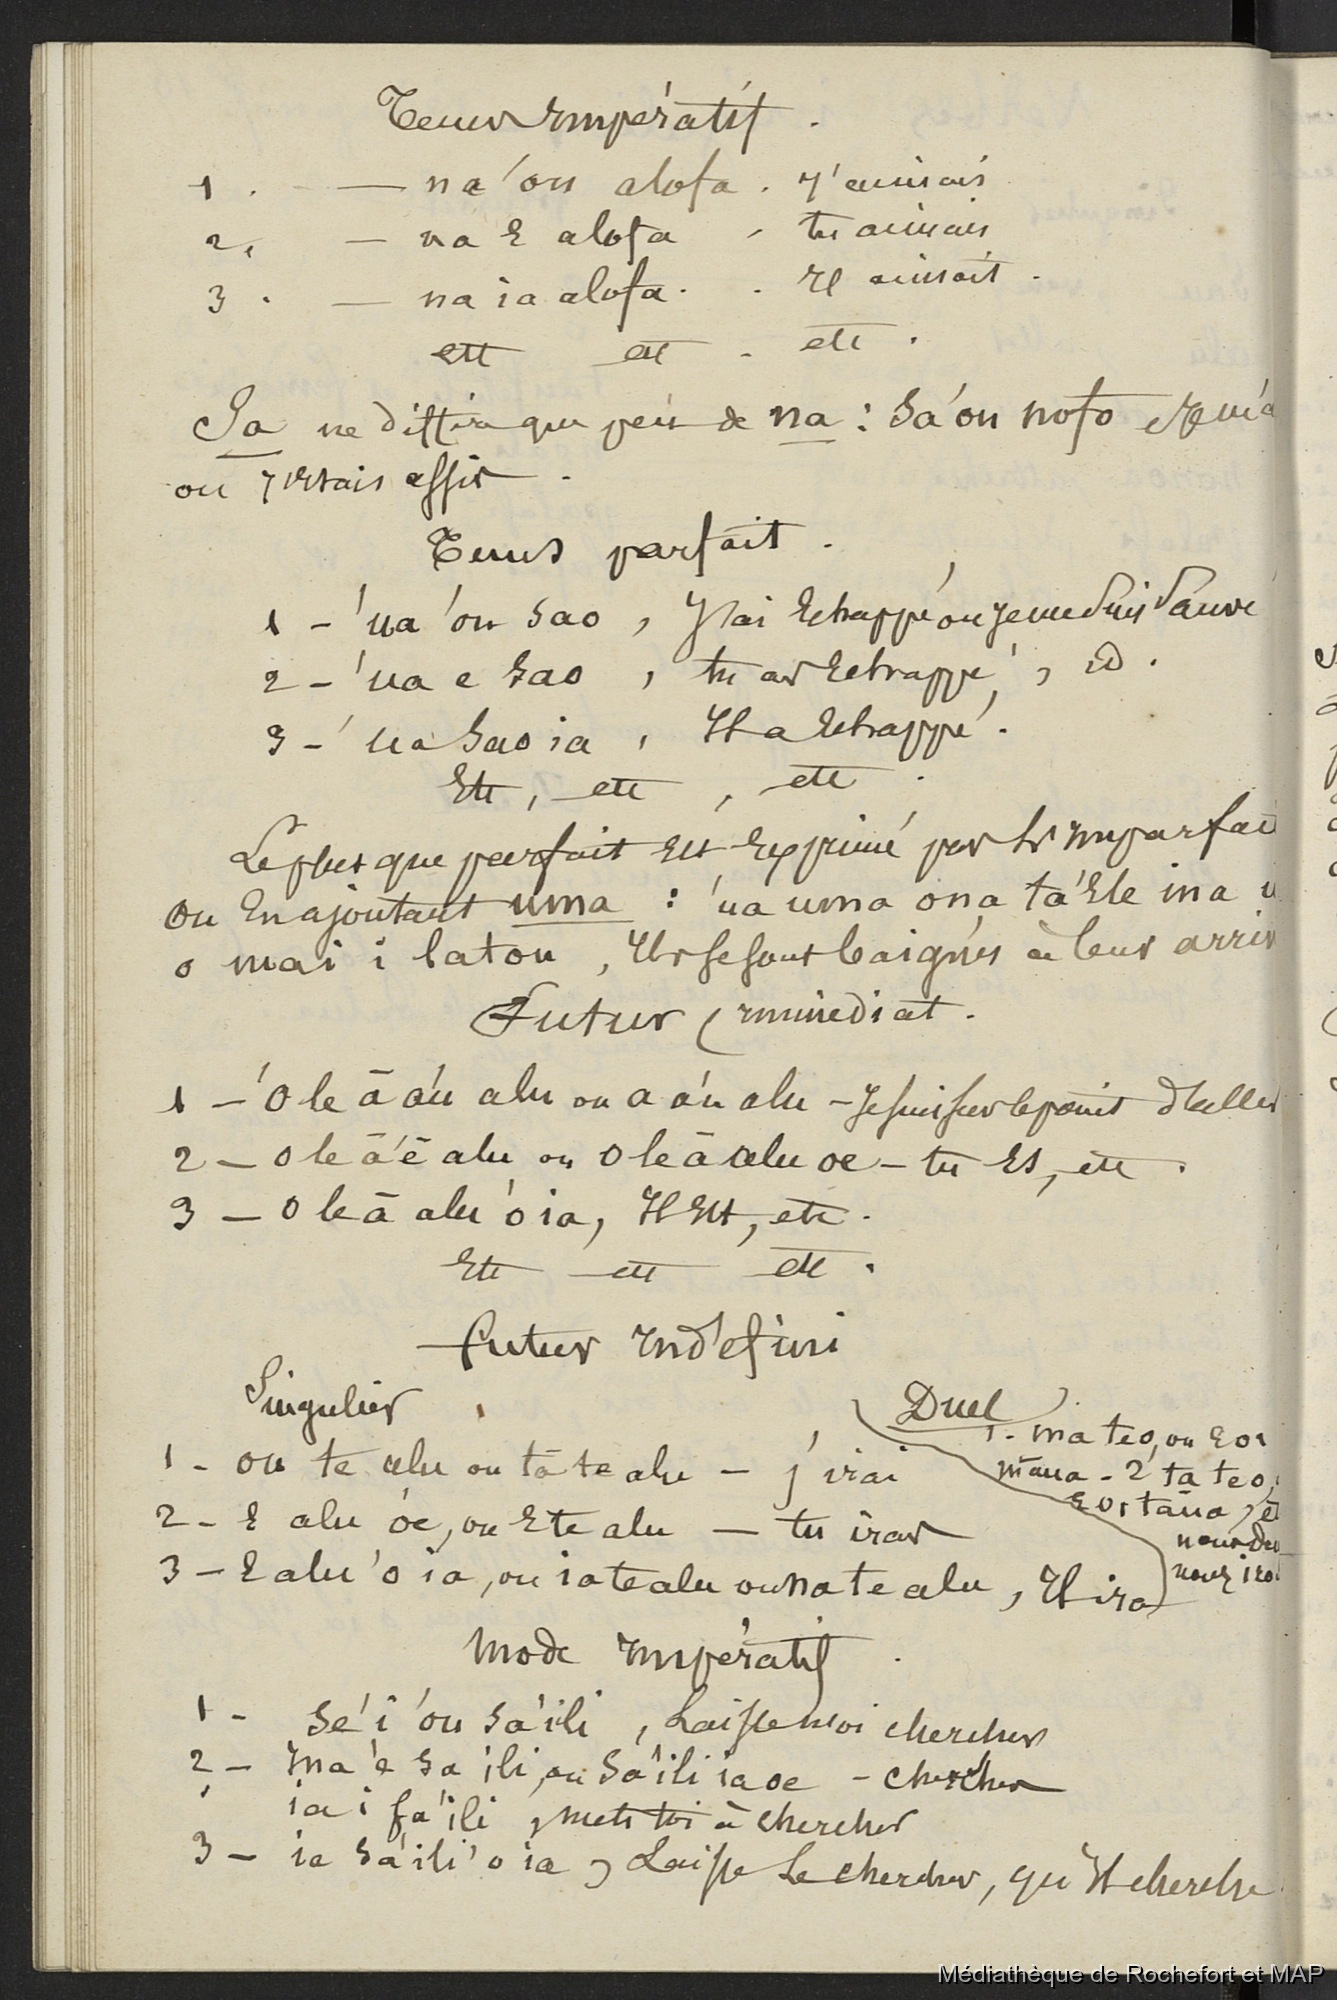 Temps Impératif .
1 . — na 'ou alofa . J'aimais
2, — na E alofa , tu aimais
3 . — na ia alofa . . Il aimait .
etc etc . etc .
Sa ne diffère que peu de na : Sa'ou nofo
ou j'étais assis .
Temps parfait .
1 - 'ua 'ou Sao , J'ai Echappé ou je me suis Sauvé
2 - 'ua e Sao , tu as Echappé , id .
3 - 'ua Sao ia , Il a Echappé .
Etc , etc , etc .
Le plus que parfait Est Exprimé par l'Imparfait
ou En ajoutant uma : 'ua uma ona tá'Ele ina u
o mai i latou , Ils se sont baignés à leur arriv
Futur Immédiat .
1 - 'O le ā a'u alu ou a a'u alu - Je suis sur le point d'aller
2 - O le ā 'ē alu ou O le ā alu oe - tu Es, etc .
3 - O le ā alu 'o ia, Il Est, etc .
Etc etc etc .
Futur Indéfini
Singulier
1 - ou te alu ou tā te alu - j'irai
2 - E alu 'oe, ou E te alu - tu iras
3 - E alu 'o ia, ou ia te alu ou na te alu , Il ira
Duel
1 - ma te o, ou E oi
māua - 2 ta te o,
E oi tāua,
nous deux
nous iro
Mode Impératif .
1 - Se'i 'ou Sa'ili , Laisse moi chercher
2 - Ma 'e Sa'ili, ou Sa'ili ia oe - chercher
ia i fa'ili , mets toi à chercher
3 - ia Sa'ili 'o ia , Laisse Le chercher, qu'Il cherche
Médiathèque de Rochefort et MAP